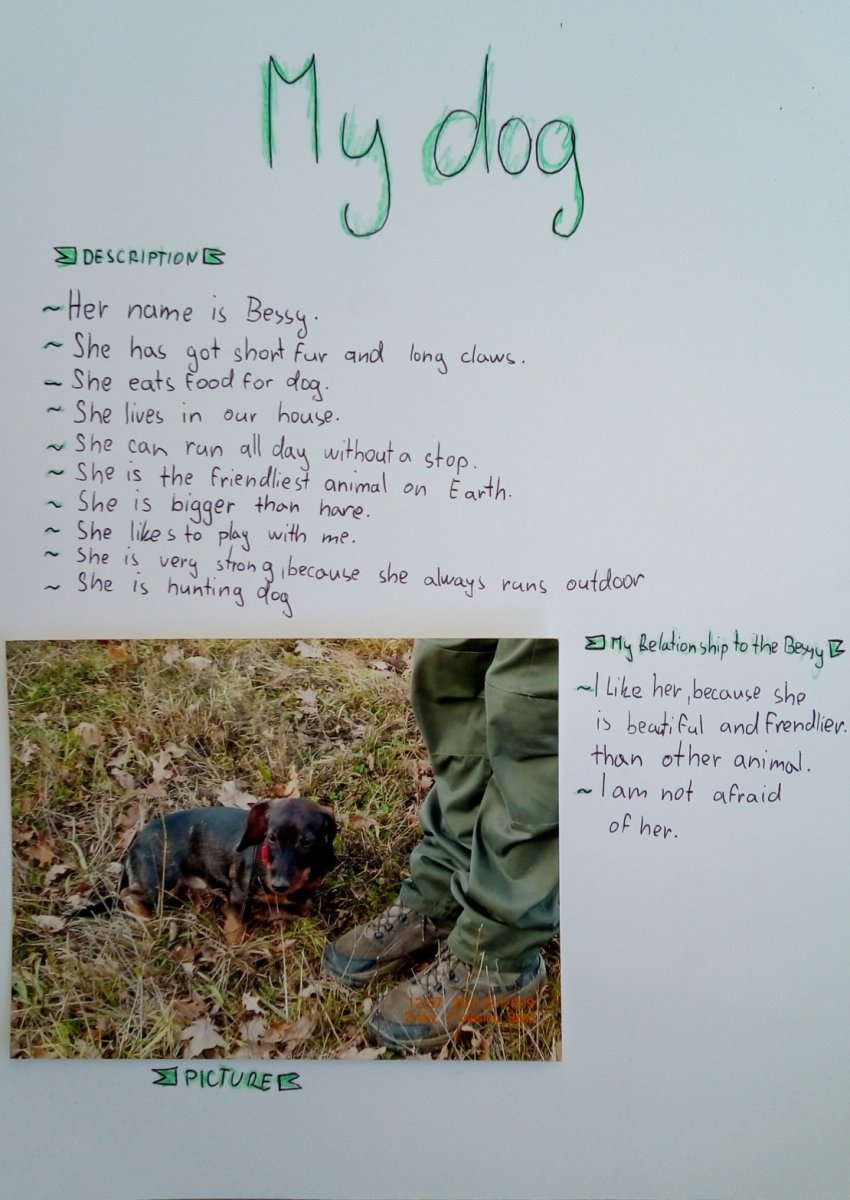 My dog
DESCRIPTION
~ Her name is Bessy.
~ She has got short fur and long claws.
~ She eats food for dog.
~ She lives in our house.
~ She can run all day without a stop.
~ She is the friendliest animal on Earth.
~ She is bigger than hare.
~ She likes to play with me.
~ She is very strong, because she always runs outdoor
~ She is hunting dog
My Relationship to the Bessy
~ I like her, because she
is beautiful and frendlier.
than other animal.
~ I am not afraid
of her.
PICTURE